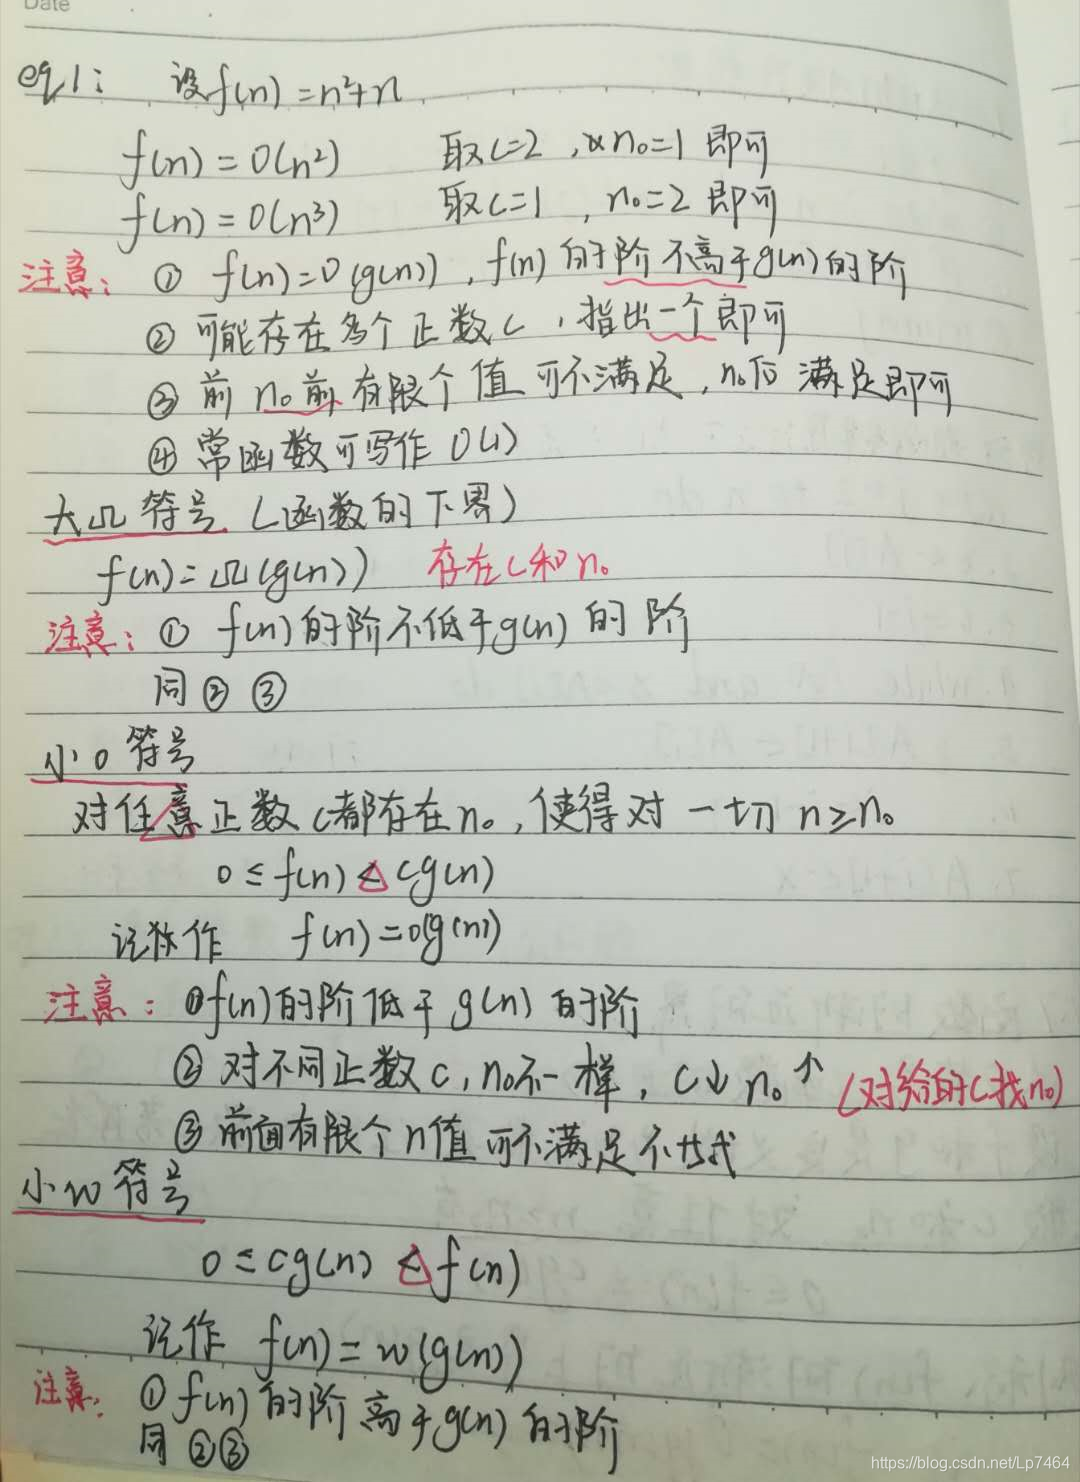 Date
eg1: 设f(n)=n²+n
f(n)=O(n²) 取c=2,n₀=1 即可
f(n)=O(n³) 取c=1,n₀=2 即可
注意: ① f(n)=O(g(n)),f(n)的阶不高于g(n)的阶
② 可能存在多个正数c,指出一个即可
③ 前n₀前有限个值可不满足,n₀后满足即可
④ 常函数可写作O(1)
大Ω符号(函数的下界)
f(n)=Ω(g(n)) 存在c和n₀
注意: ① f(n)的阶不低于g(n)的阶
同②③
小o符号
对任意正数c都存在n₀,使得对一切n≥n₀
0≤f(n)<cg(n)
记作 f(n)=o(g(n))
注意: ①f(n)的阶低于g(n)的阶
② 对不同正数c,n₀不一样,c↓n₀↑ (对给的c找n₀)
③ 前面有限个n值可不满足不等式
小w符号
0≤cg(n)<f(n)
记作 f(n)=w(g(n))
注意: ① f(n)的阶高于g(n)的阶
同②③
https://blog.csdn.net/Lp7464